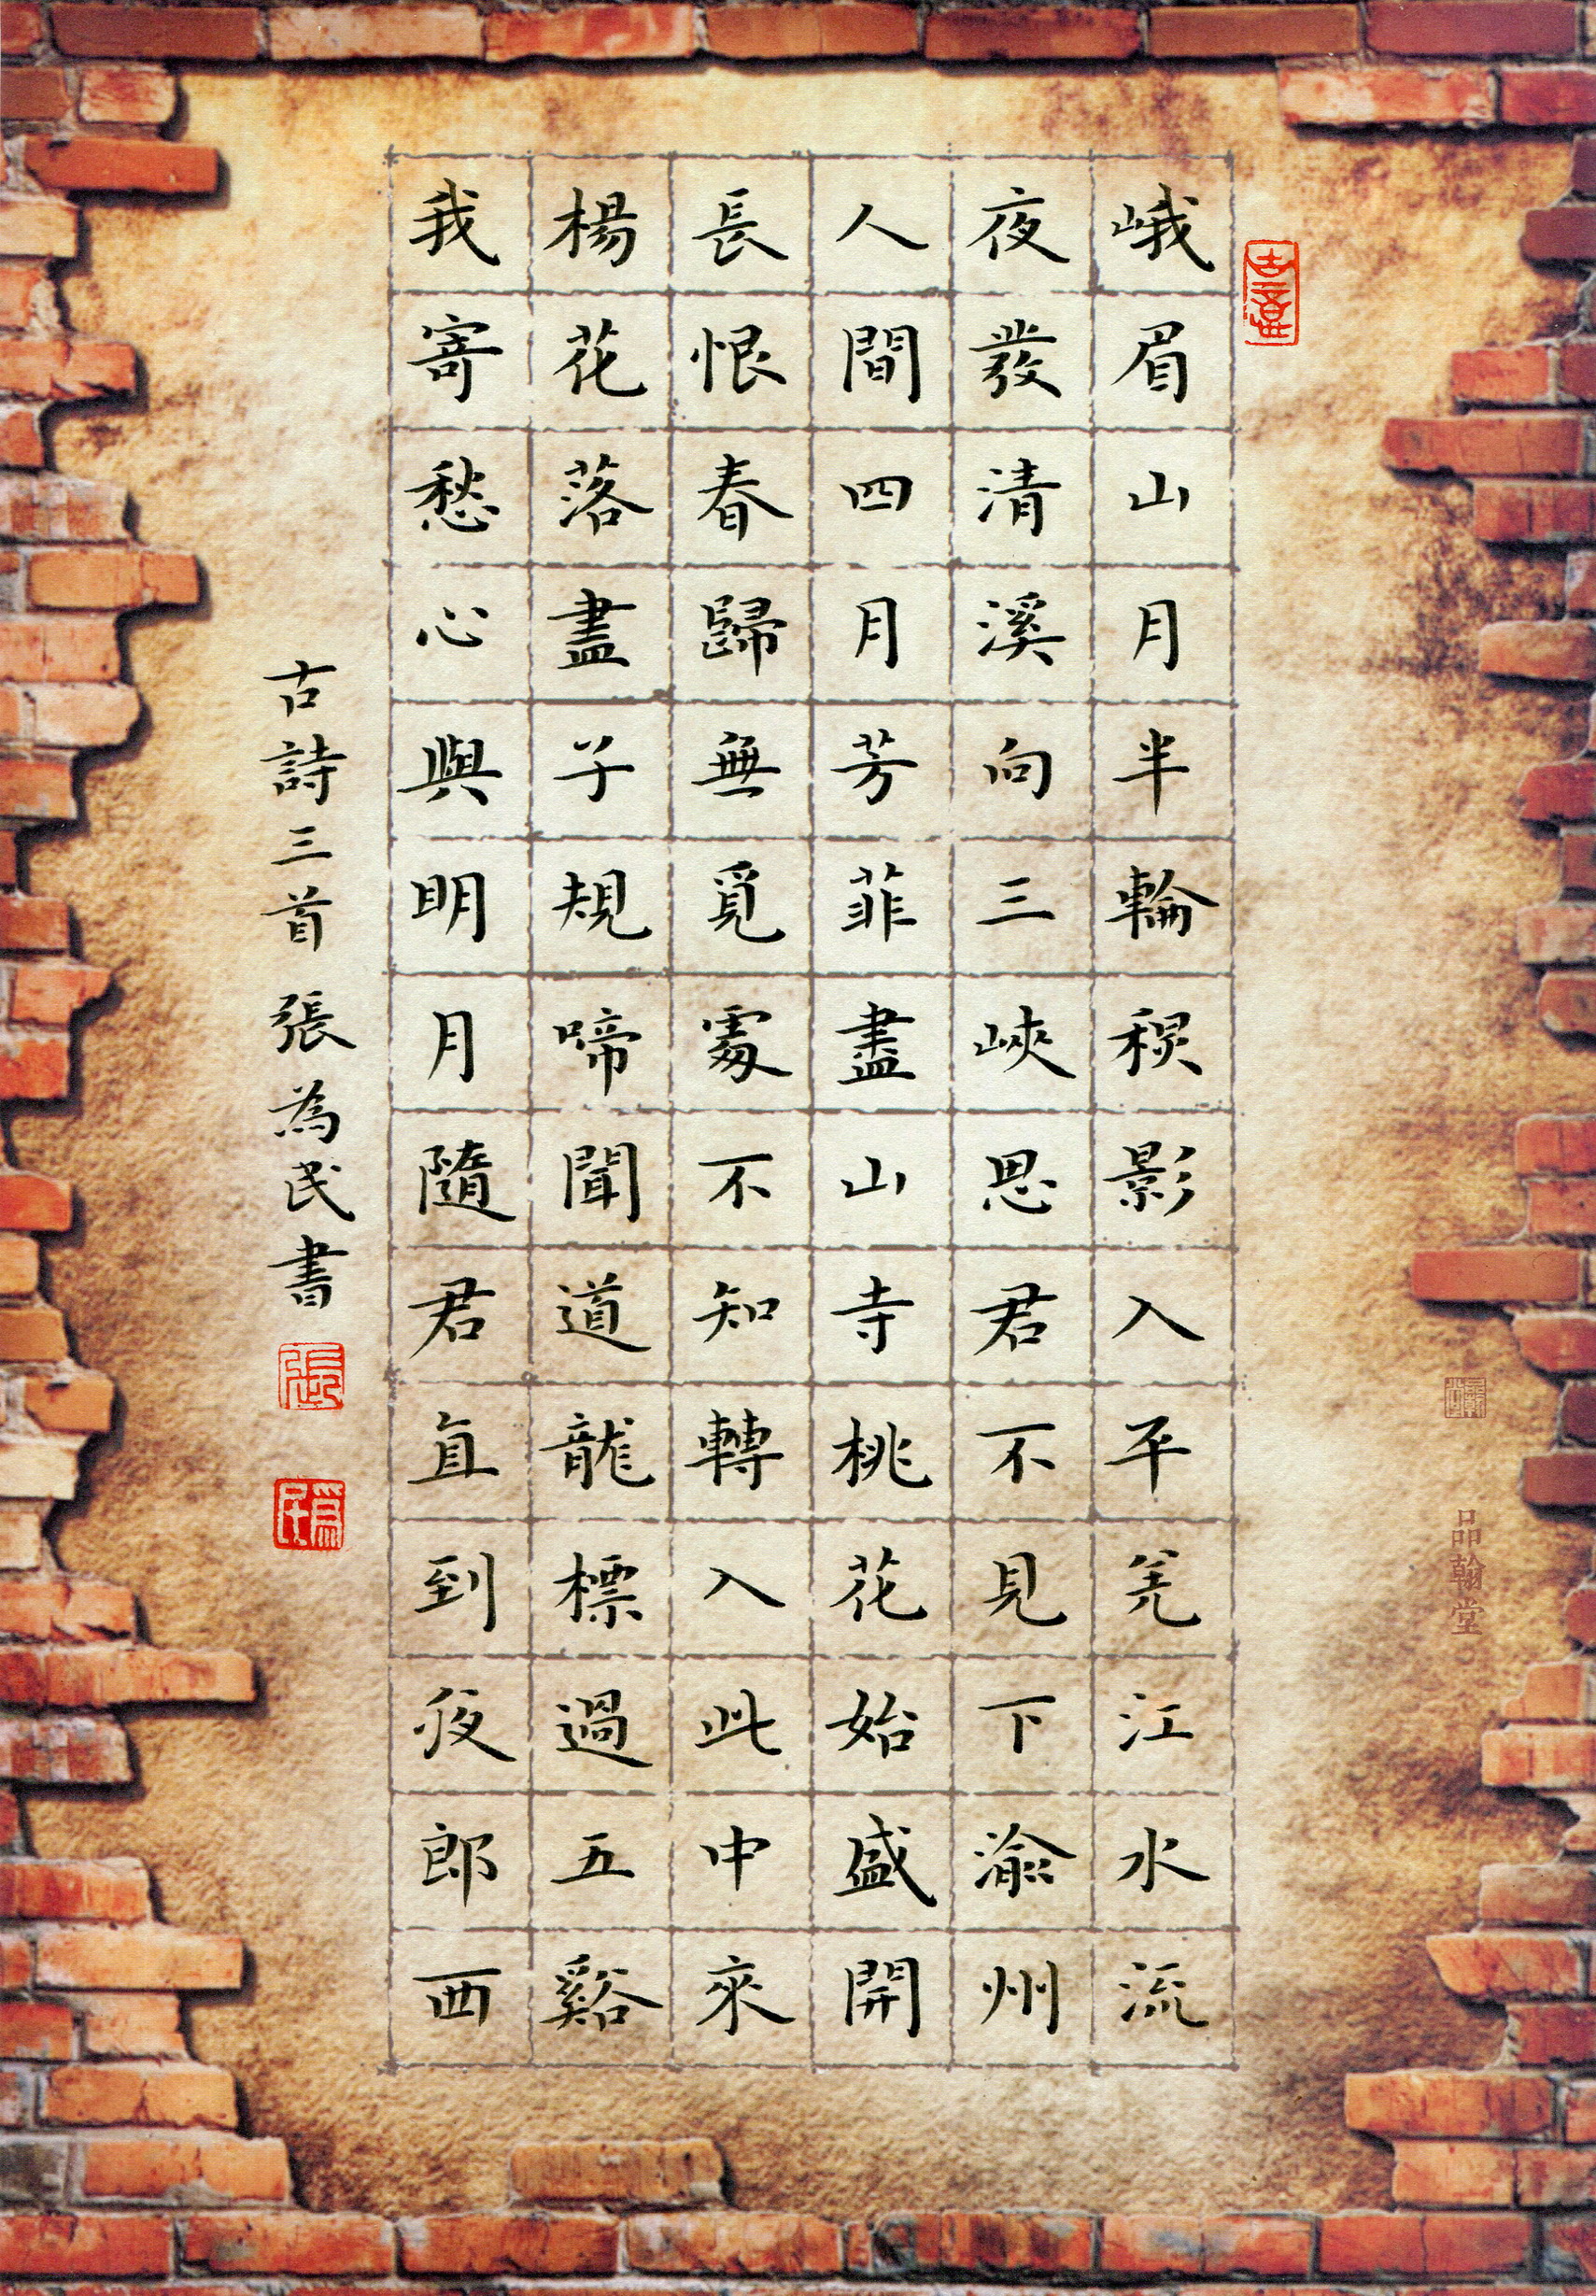 峨眉山月半輪秋影入平羌江水流
夜發清溪向三峽思君不見下渝州
人間四月芳菲盡山寺桃花始盛開
長恨春歸無覓處不知轉入此中來
楊花落盡子規啼聞道龍標過五谿
我寄愁心與明月隨君直到夜郎西
古詩三首 張為民書
張
為民
品翰堂